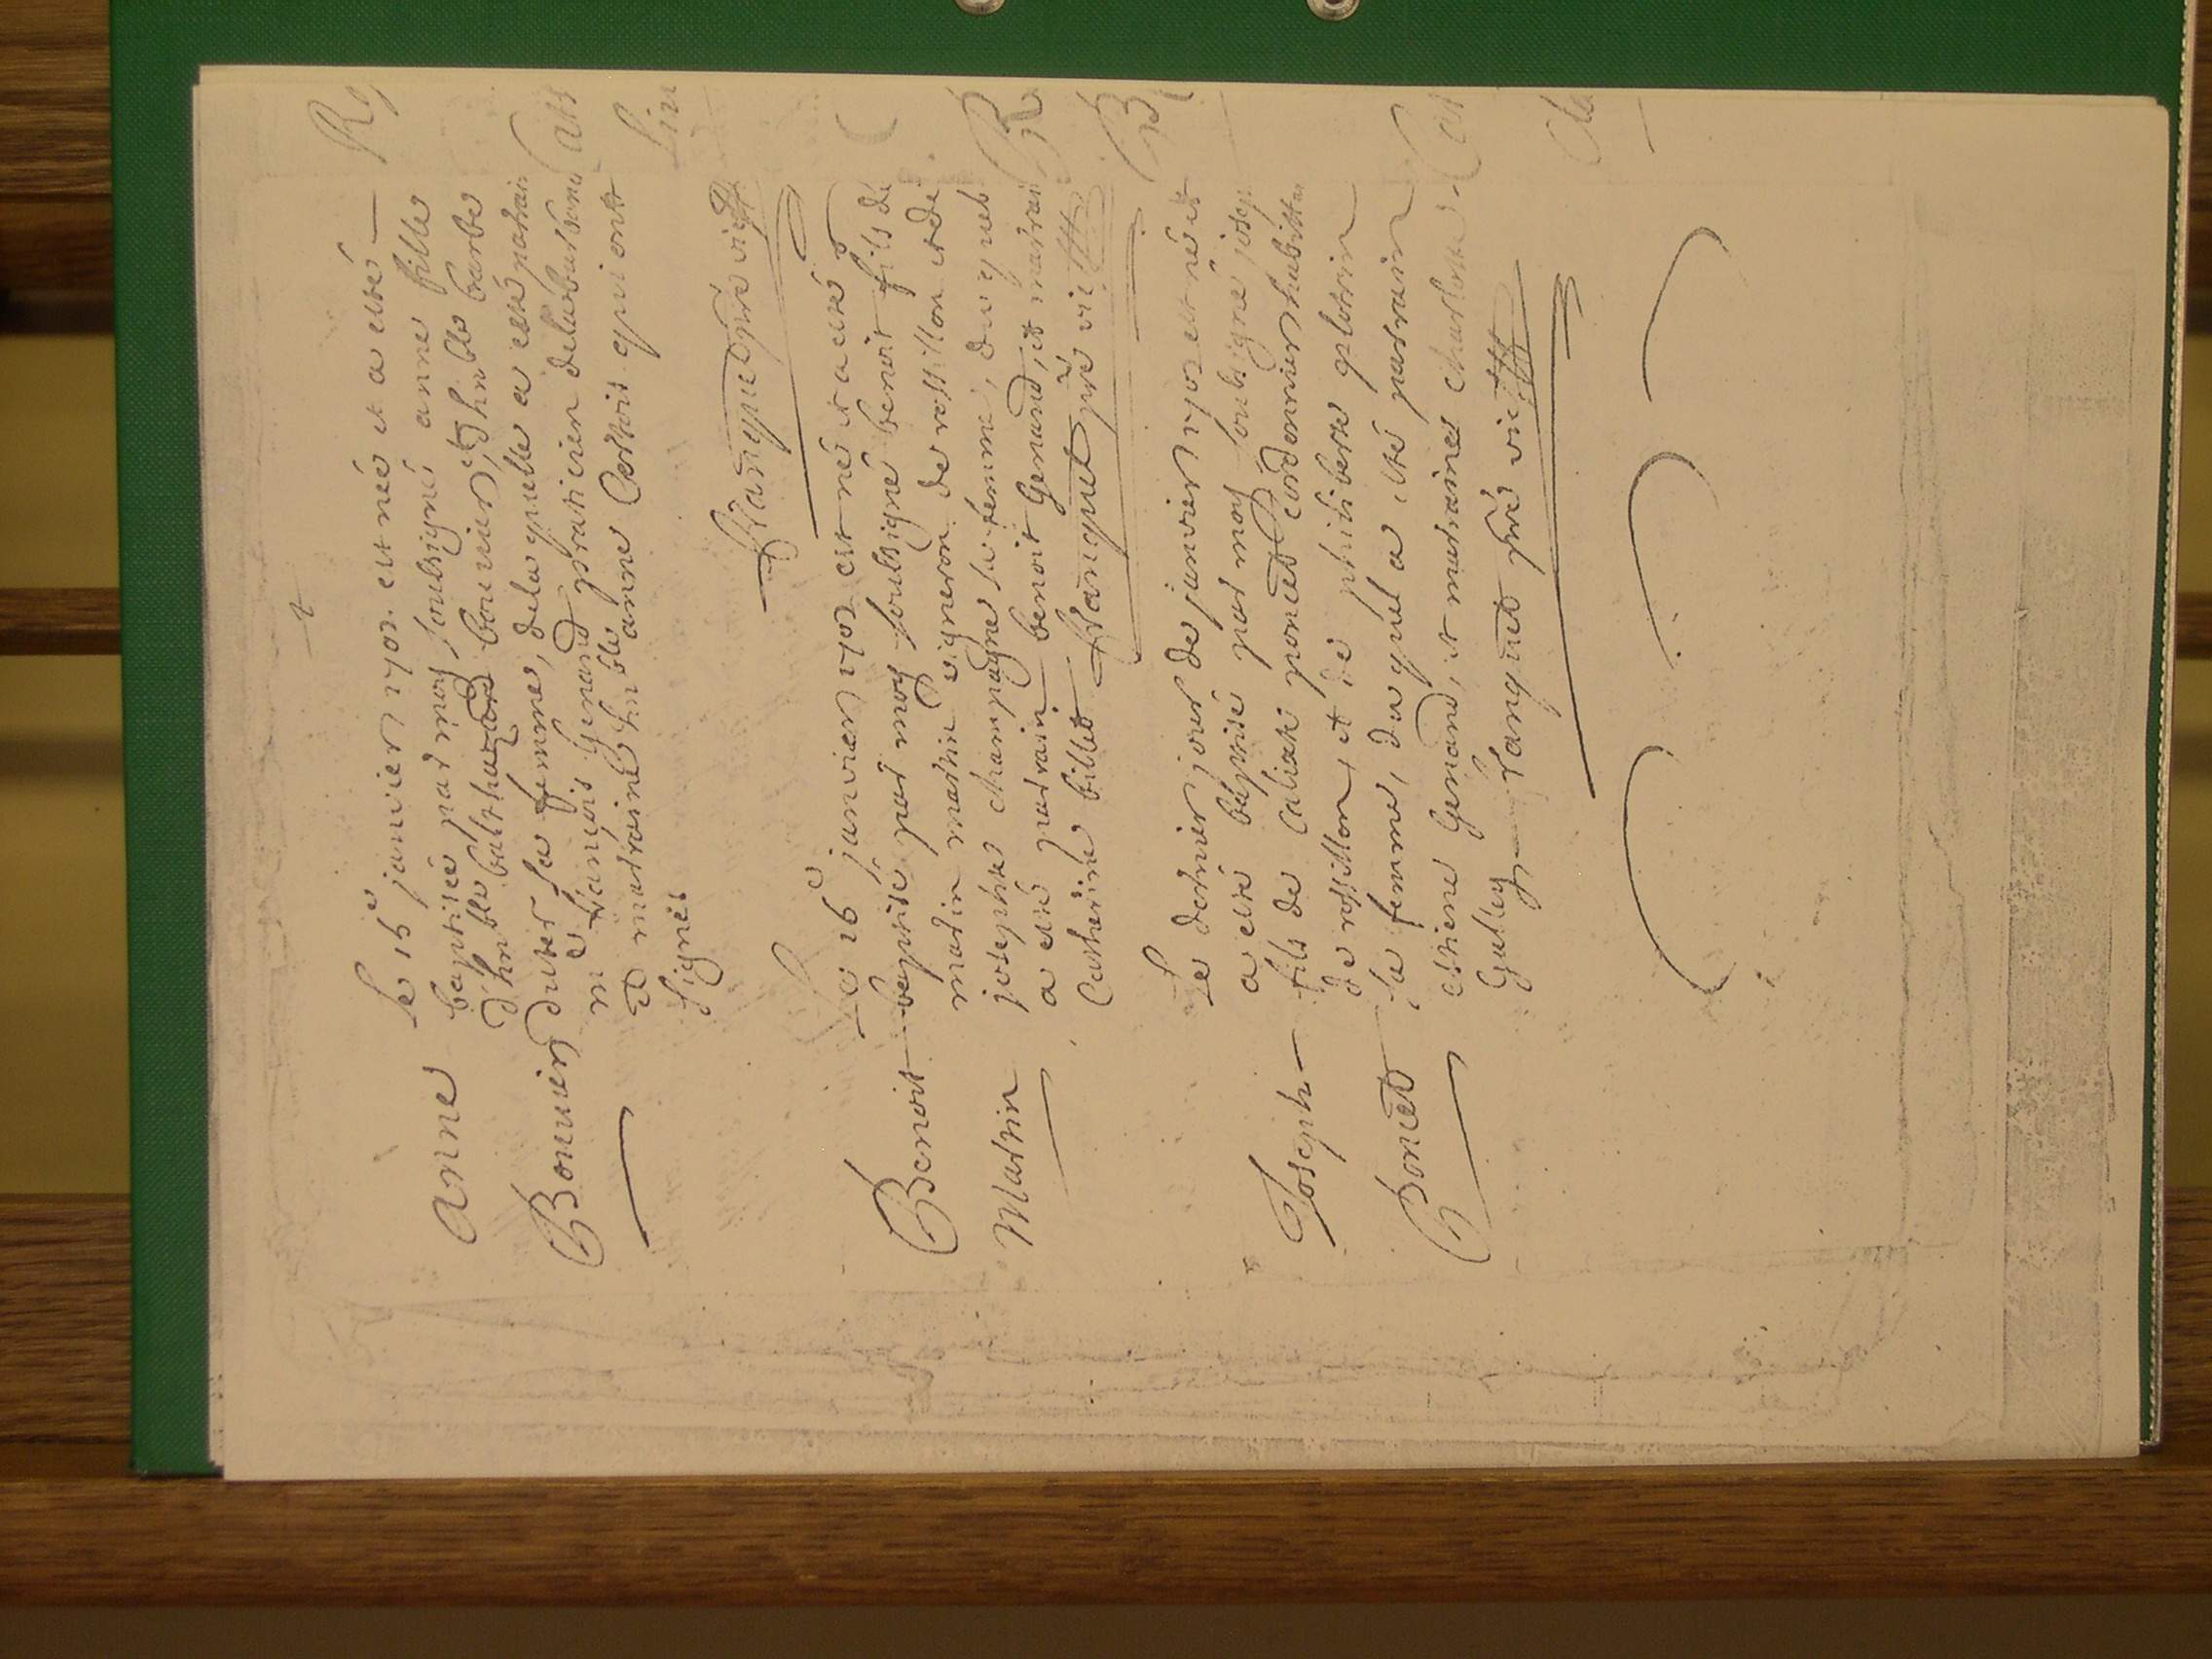 Anne
Bouuier
Le 15e januier 1702 est née et a esté
baptisée par moy soubsigné anne fille
d'hnble balthazard bouuier, et d'hnble barbe
duter sa femme, de la quelle a esté parrain
me françois Genand praticien
et marraine hnble anne qui ont
signés
franquet pre vic
Benoit
Martin
Le 26e januier 1702 est né et a esté
baptisé par moy soubsigné benoit fils de
martin martin vigneron de rossillon et de
josephte champagne sa femme, du quel
a esté parrain benoit Genand, et marraine
Catherine billet franquet pre vic
Joseph
Poncet
Le dernier jour de januier 1702 est né et
a esté baptisé par moy soubsigné joseph
fils de poncet cordonnier habittant
de rossillon, et de philiberte
sa femme, du quel a esté parrain
estiene Genand, et marraine charlotte
Gallay franquet pre vic